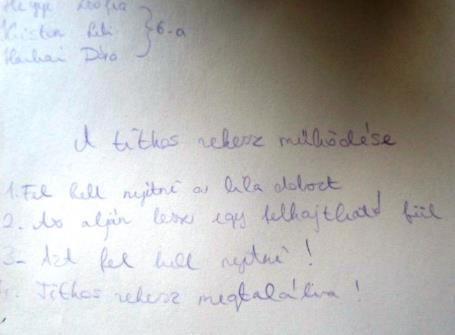 Zsófia
Lili } 6.a
Dóra
A titkos rekesz működése
1. Fel kell nyitni a lila dobozt
2. Az alján lesz egy felhajtható fül
3- Azt fel kell nyitni!
4. Titkos rekesz megtalálva!